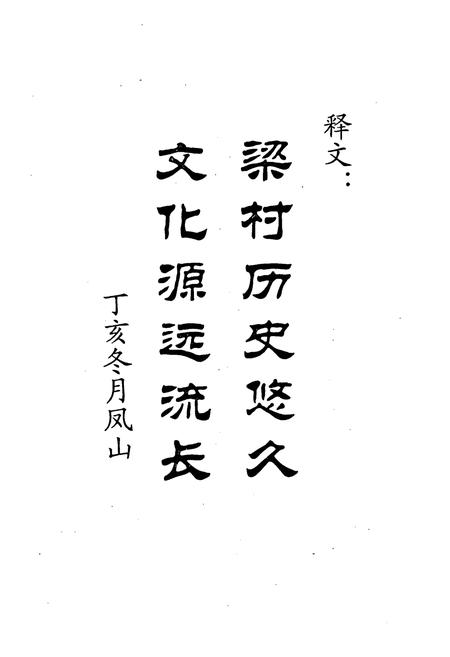 释文：
梁村历史悠久
文化源远流长
丁亥冬月凤山